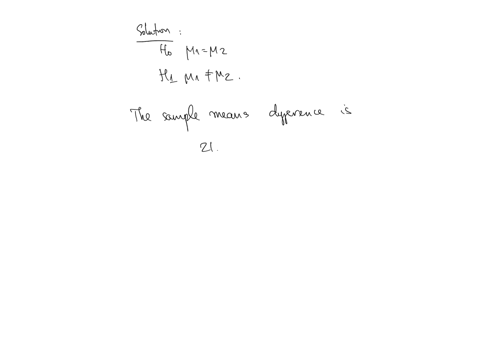 Solution :
H0 μ1=μ2
H1 μ1≠μ2.
The sample means difference is
21.